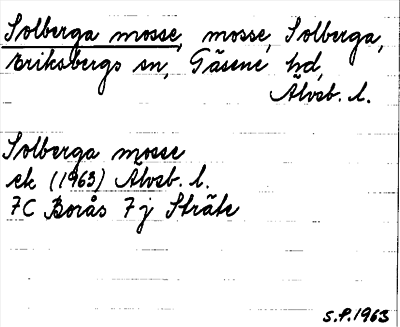 Solberga mosse, mosse, Solberga,
Eriksbergs sn, Gäsene hd,
Älvsb. l.
Solberga mosse
ek (1963) Älvsb. l.
7C Borås 7j Stråle
S.P. 1963